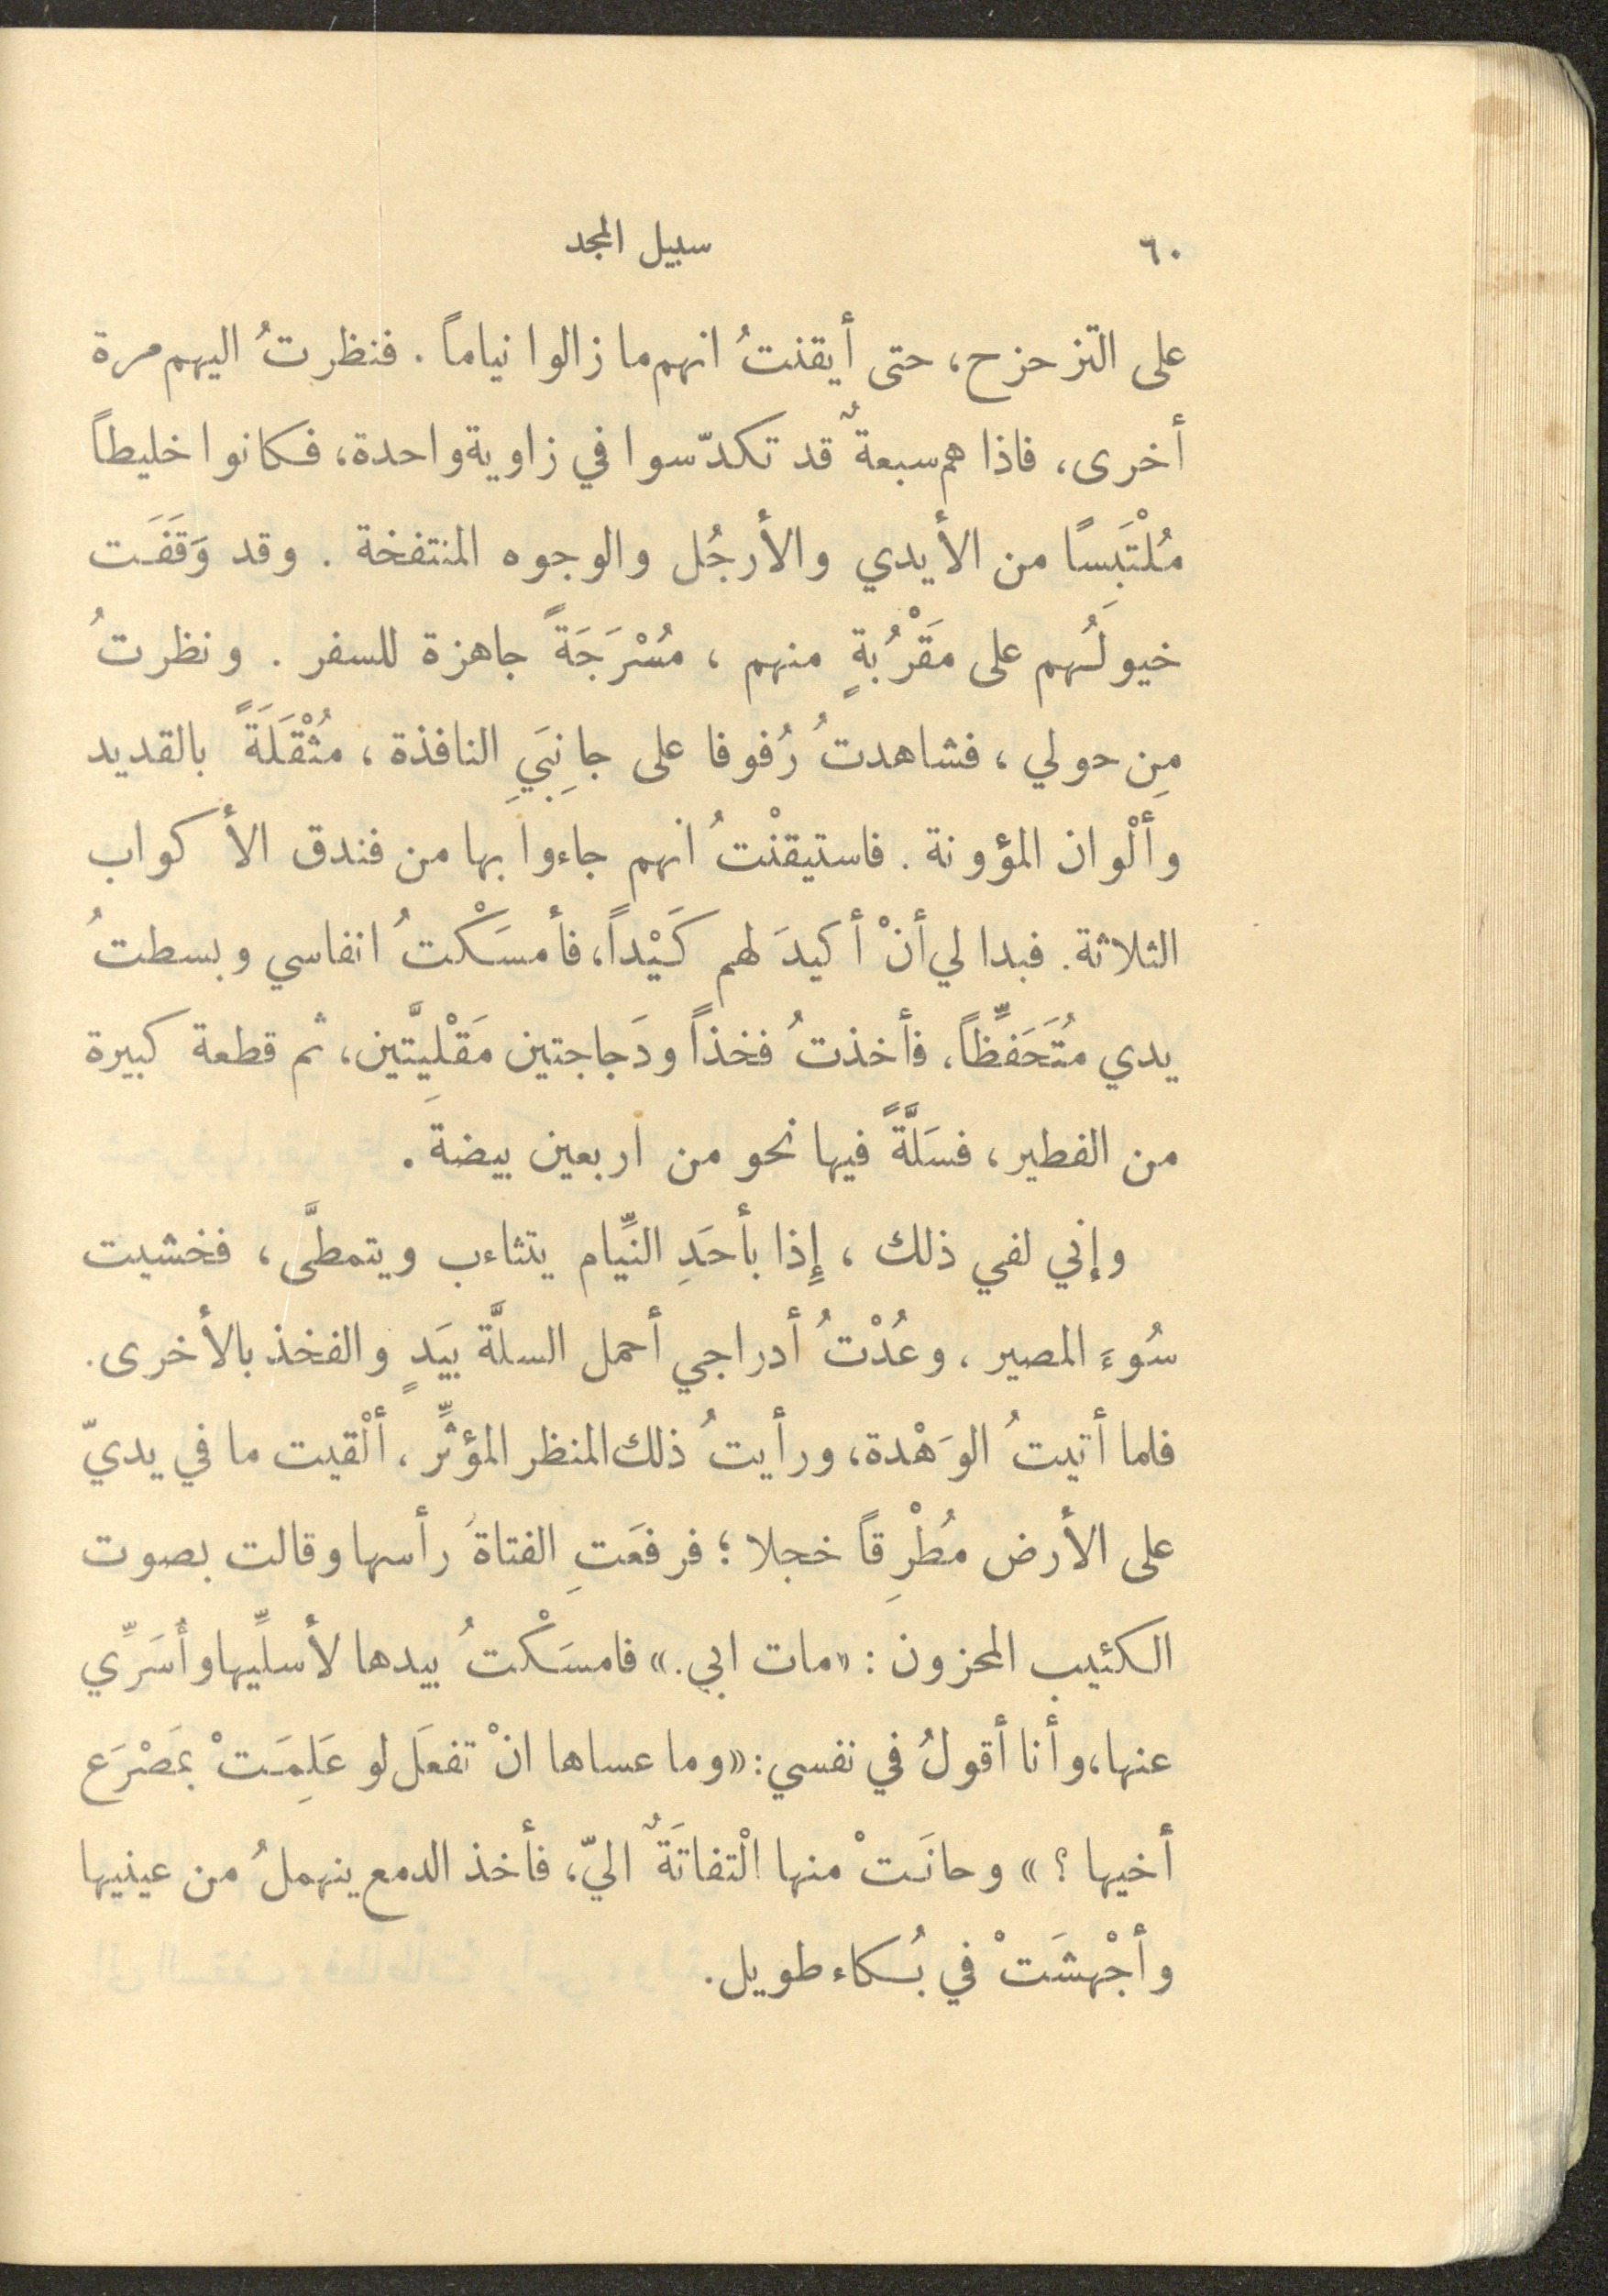 ٦٠ سبيل المجد
على التزحزح، حتى أيقنتُ انهم ما زالوا نياماً. فنظرتُ اليهم مرة
أخرى، فاذا هم سبعةٌ قد تكدّسوا في زاوية واحدة، فكانوا خليطاً
مُلْتَبَسًا من الأيدي والأرجُل والوجوه المنتفخة. وقد وَقَفَت
خيولُهم على مَقْرُبةٍ منهم، مُسْرَجَةً جاهزة للسفر. ونظرتُ
مِن حولي، فشاهدتُ رُفوفا على جانِبَيِ النافذة، مُثْقَلَةً بالقديد
وألْوان المؤونة. فاستيقنْتُ انهم جاءوا بها من فندق الأكواب
الثلاثة. فبدا لي أنْ أكيدَ لهم كَيْداً، فأمسَكْتُ انفاسي وبسطتُ
يدي مُتَحَفِّظاً، فأخذتُ فخذاً ودَجاجتين مَقْلِيَّتين، ثم قطعة كبيرة
من الفطير، فسَلَّةً فيها نحو من اربعين بيضة.
وإني لفي ذلك، إِذا بأحَدِ النيِّام يتثاءب ويتمطَّى، فخشيت
سُوءَ المصير، وعُدْتُ أدراجي أحمل السلَّة بيَدٍ والفخذ بالأخرى.
فلما أتيتُ الوَهْدة، ورأيتُ ذلك المنظر المؤثِّر، ألْقيت ما في يديّ
على الأرض مُطْرِقاً خجلا؛ فرفعَتِ الفتاةُ رأسها وقالت بصوت
الكئيب المحزون: «مات ابي.» فامسَكْتُ بيدها لأسلِّيها وأُسَرِّي
عنها، وأنا أقولُ في نفسي: «وما عساها انْ تفعَل لو عَلِمَتْ بمَصْرَع
أخيها؟» وحانَتْ منها الْتفاتَةٌ اليّ، فأخذ الدمع ينهملُ من عينيها
وأجْهشَتْ في بُكاء طويل.